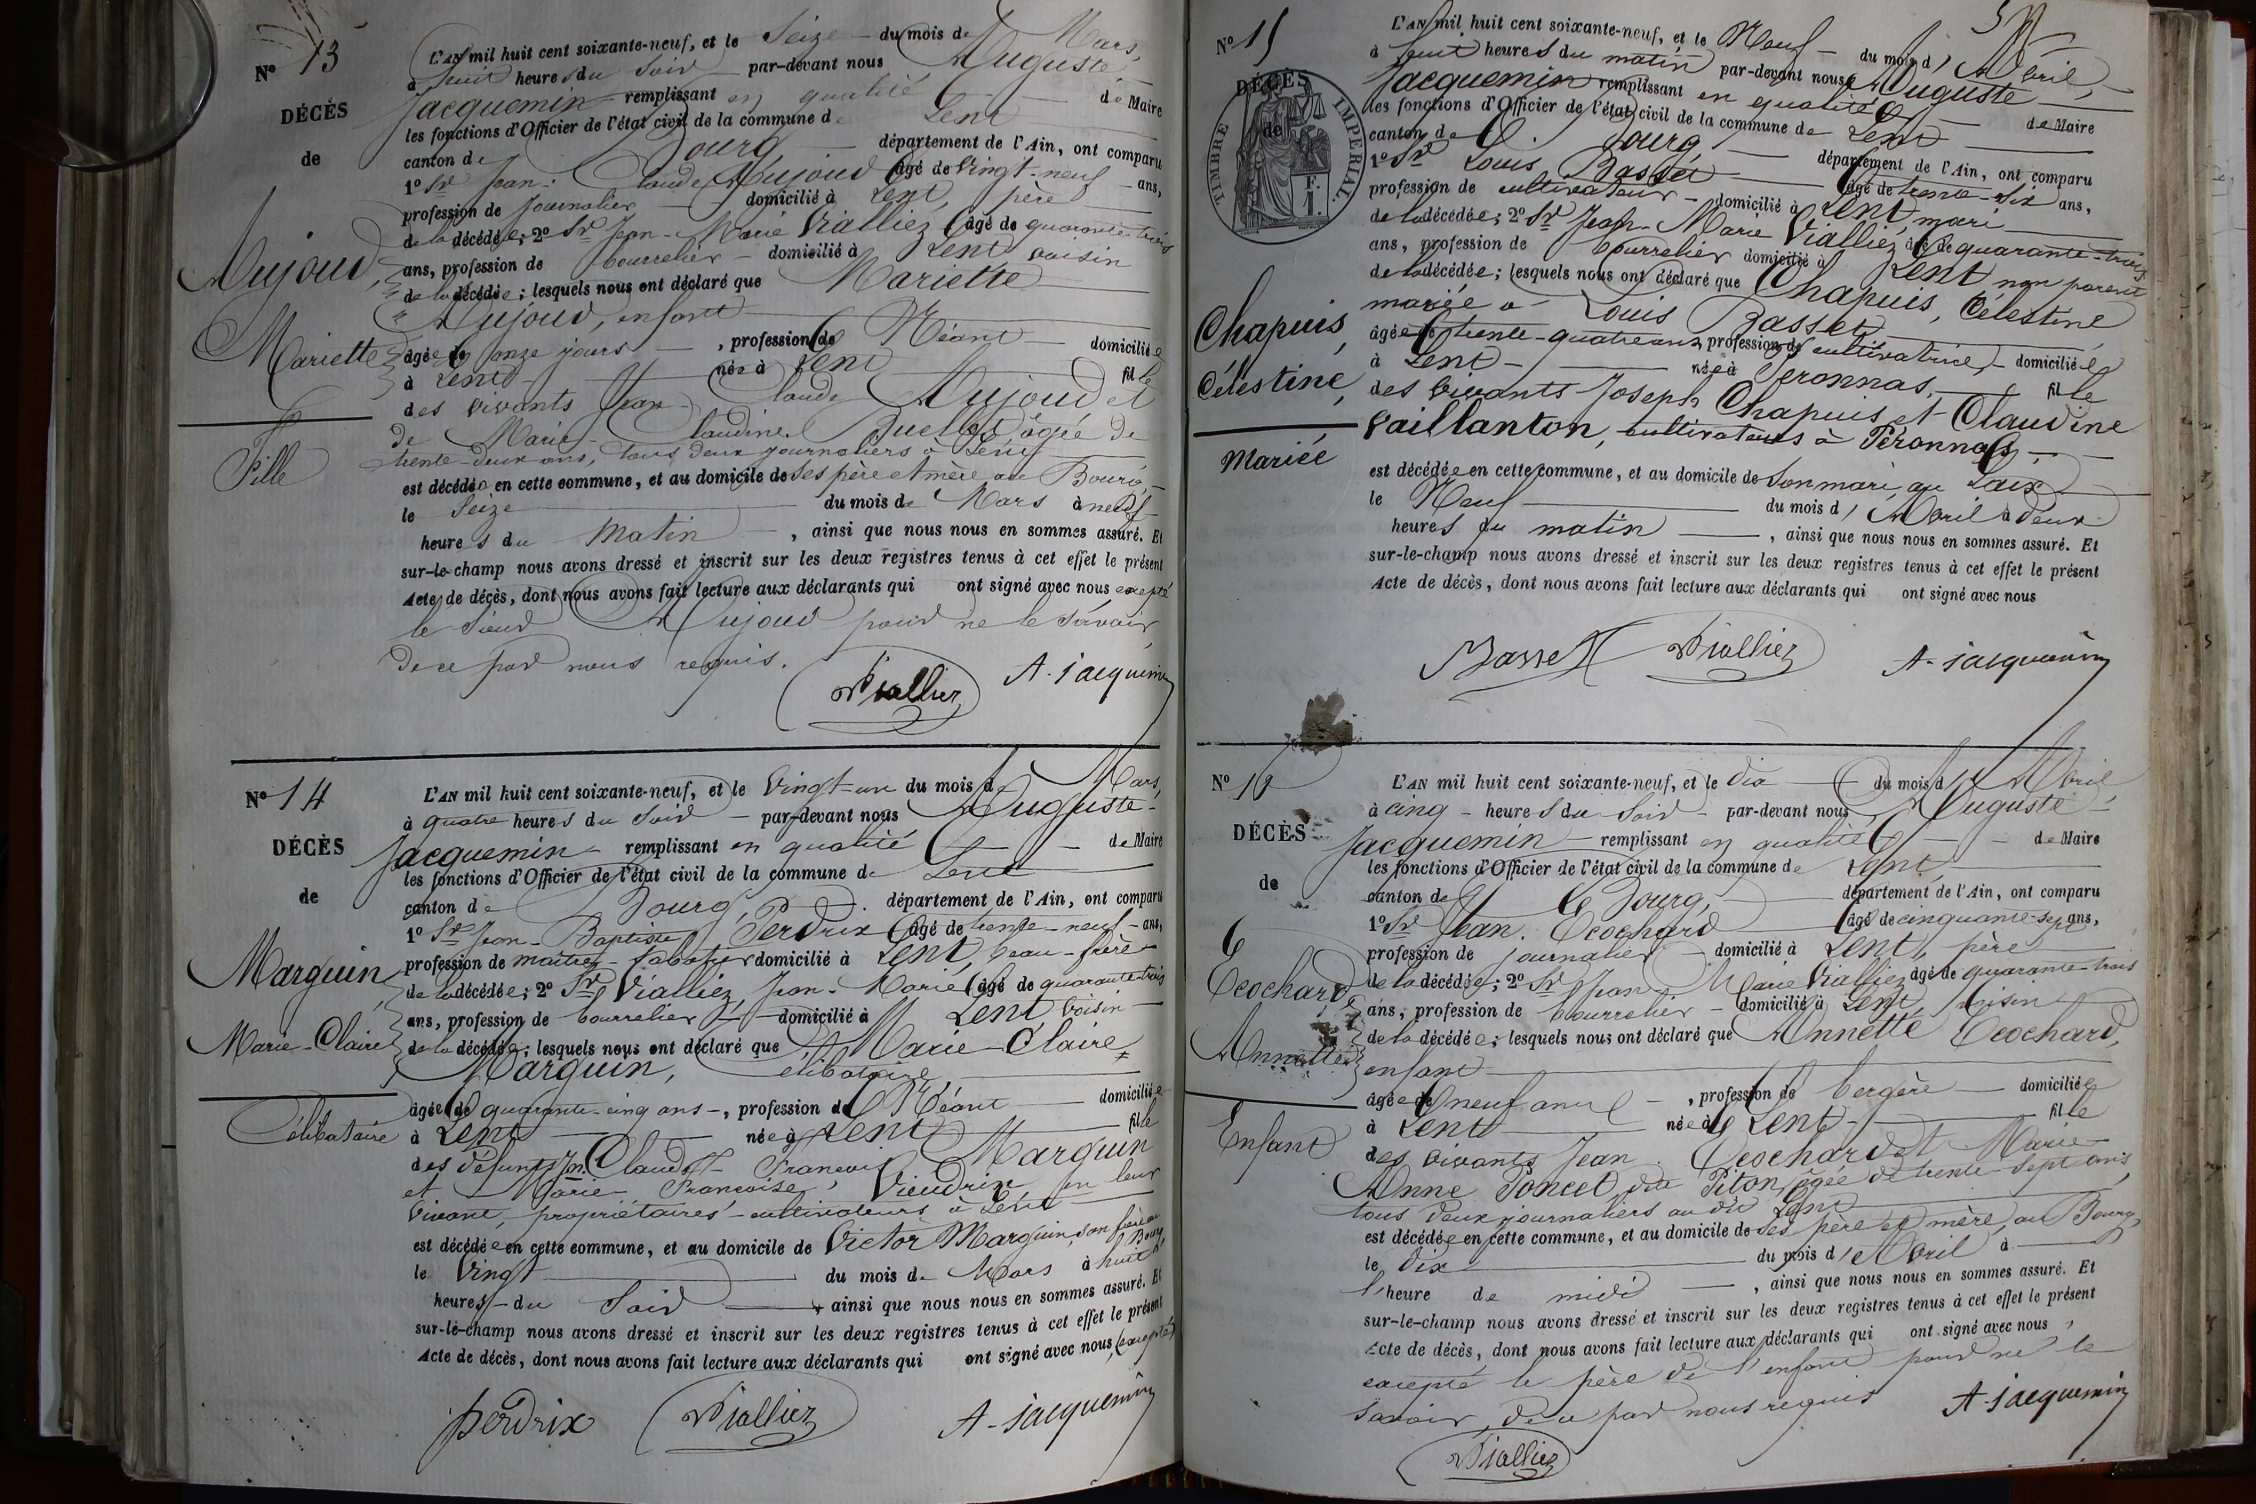 N° 13
DÉCÈS
de
Mujoud,
Mariette
Fille
L'AN mil huit cent soixante-neuf, et le Seize du mois de Mars,
à huit heures du Soir par-devant nous Auguste
Jacquemin remplissant en qualité de Maire
les fonctions d'Officier de l'état civil de la commune de Lent
canton de Bourg département de l'Ain, ont comparu
1° Sr Jean-Claude Mujoud âgé de vingt-neuf ans,
profession de Journalier domicilié à Lent, père
de la décédée; 2° Sr Jean-Marie Vialliez âgé de quarante-trois
ans, profession de bourrelier domicilié à Lent voisin
de la décédée; lesquels nous ont déclaré que Mariette
Mujoud, enfant
âgée de onze jours, profession de Néant domiciliée
à Lent née à Lent fille
des vivants Jean Claude Mujoud et
de Marie-Claudine âgée de
trente-deux ans, tous deux journaliers à Lent
est décédée en cette commune, et au domicile de ses père et mère au Bourg,
le Seize du mois de Mars à neuf
heures du Matin, ainsi que nous nous en sommes assuré. Et
sur-le-champ nous avons dressé et inscrit sur les deux registres tenus à cet effet le présent
Acte de décès, dont nous avons fait lecture aux déclarants qui ont signé avec nous excepté
le Sieur Mujoud pour ne le savoir
de ce par nous requis.
Vialliez A. Jacquemin
N° 14
DÉCÈS
de
Marguin,
Marie-Claire
Célibataire
L'AN mil huit cent soixante-neuf, et le Vingt-un du mois de Mars,
à quatre heures du Soir par-devant nous Auguste
Jacquemin remplissant en qualité de Maire
les fonctions d'Officier de l'état civil de la commune de Lent
canton de Bourg, département de l'Ain, ont comparu
1° Sr Jean-Baptiste Perdrix âgé de trente-neuf ans,
profession de maître-sabotier domicilié à Lent, beau-frère
de la décédée; 2° Sr Vialliez, Jean-Marie âgé de quarante-trois
ans, profession de bourrelier domicilié à Lent voisin
de la décédée; lesquels nous ont déclaré que Marie-Claire
Marguin, Célibataire
âgée de quarante-cinq ans, profession de Néant domiciliée
à Lent née à Lent fille
des défunts Jn. Claude François Marguin
et Marie Françoise Vieudrin en leur
vivant, propriétaires-cultivateurs à Lent
est décédée en cette commune, et au domicile de Victor Marguin, son frère au Bourg,
le Vingt du mois de Mars à huit
heures du Soir, ainsi que nous nous en sommes assuré. Et
sur-le-champ nous avons dressé et inscrit sur les deux registres tenus à cet effet le présent
Acte de décès, dont nous avons fait lecture aux déclarants qui ont signé avec nous
Perdrix Vialliez A. Jacquemin
N° 15
TIMBRE IMPERIAL.
DÉCÈS
de
Chapuis,
Célestine,
Mariée
L'AN mil huit cent soixante-neuf, et le Neuf du mois d'Avril,
à huit heures du matin par-devant nous Auguste
Jacquemin remplissant en qualité de Maire
les fonctions d'Officier de l'état civil de la commune de Lent
canton de Bourg département de l'Ain, ont comparu
1° Sr Louis Basset âgé de trente-six ans,
profession de cultivateur domicilié à Lent, mari
de la décédée; 2° Sr Jean-Marie Vialliez âgé de quarante-trois
ans, profession de bourrelier domicilié à Lent non parent
de la décédée; lesquels nous ont déclaré que Chapuis, Célestine
mariée à Louis Basset
âgée de trente-quatre ans, profession de cultivatrice domiciliée
à Lent née à Péronnas, fille
des vivants Joseph Chapuis et Claudine
Vaillanton, cultivateurs à Péronnas,
est décédée en cette commune, et au domicile de Son mari, au Saix
le Neuf du mois d'Avril à deux
heures du matin, ainsi que nous nous en sommes assuré. Et
sur-le-champ nous avons dressé et inscrit sur les deux registres tenus à cet effet le présent
Acte de décès, dont nous avons fait lecture aux déclarants qui ont signé avec nous
Basset Vialliez A. Jacquemin
N° 16
DÉCÈS
de
Ecochard
Annette
Enfant
L'AN mil huit cent soixante-neuf, et le dix du mois d'Avril,
à cinq heures du Soir par-devant nous Auguste
Jacquemin remplissant en qualité de Maire
les fonctions d'Officier de l'état civil de la commune de Lent,
canton de Bourg, département de l'Ain, ont comparu
1° Sr Jean Ecochard âgé de cinquante-sept ans,
profession de journalier domicilié à Lent, père
de la décédée; 2° Sr Jean Marie Vialliez âgé de quarante-trois
ans, profession de bourrelier domicilié à Lent, voisin
de la décédée; lesquels nous ont déclaré que Annette Ecochard,
enfant
âgée de neuf ans, profession de bergère domiciliée
à Lent née à Lent fille
des vivants Jean Ecochard et Marie
Anne Poncet dite Piton, âgée de trente-sept ans,
tous deux journaliers au dit Lent
est décédée en cette commune, et au domicile de ses père et mère, au Bourg,
le dix du mois d'Avril à
l'heure de midi, ainsi que nous nous en sommes assuré. Et
sur-le-champ nous avons dressé et inscrit sur les deux registres tenus à cet effet le présent
Acte de décès, dont nous avons fait lecture aux déclarants qui ont signé avec nous,
excepté le père de l'enfant pour ne le
savoir, de ce par nous requis A. Jacquemin
Vialliez